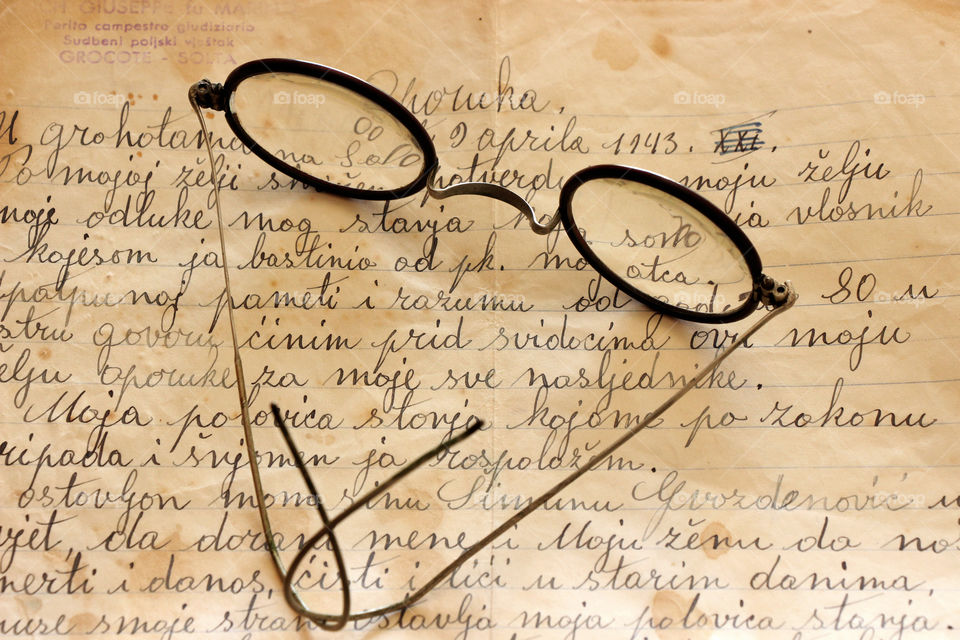 GIUSEPPE fu
Perito campestre giudiziario
Sudbeni poljski vještak
GROCOTE - SOLTA
Oporuka.
U grohotama na 9 aprila 1943.
Po mojoj želji moju želju
moje odluke mog stanja vlosnik
kojesom ja bastinio od pk. mog otca.
pameti i razumu od 80 u
govoru ćinim prid svidocima ovu moju
želju oporuke za moje sve nasljednike.
Moja polovica stanja kojame po zakonu
ripada i švjomen ja rospoložem.
ostavljon momo sinu Šimunu Gvozdenović u
vjet, da dorani mene i Moju ženu do noš
merti i danos čisti i lići u starim danima,
smoje strani ostavlja moja polovica stanja.